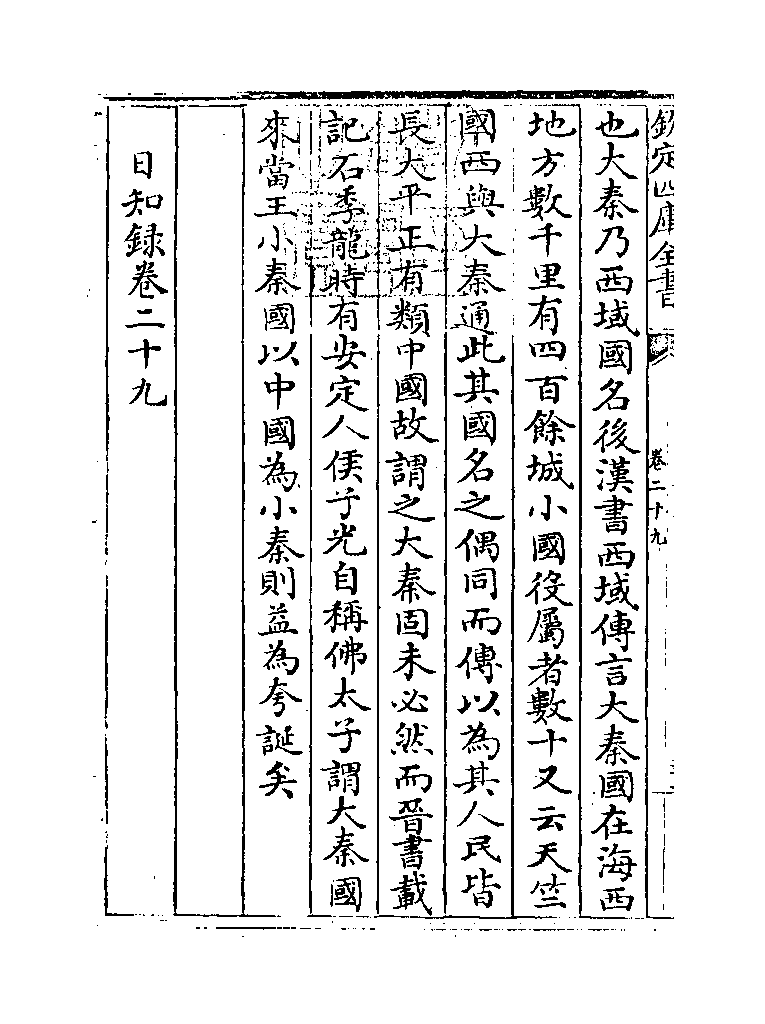 欽定四庫全書
卷二十九
也大秦乃西域國名後漢書西域傳言大秦國在海西
地方數千里有四百餘城小國役屬者數十又云天竺
國西與大秦通此其國名之偶同而傳以為其人民皆
長大平正有類中國故謂之大秦固未必然而晉書載
記石季龍時有安定人侯子光自稱佛太子謂大秦國
來當王小秦國以中國為小秦則益為夸誕矣
日知録卷二十九